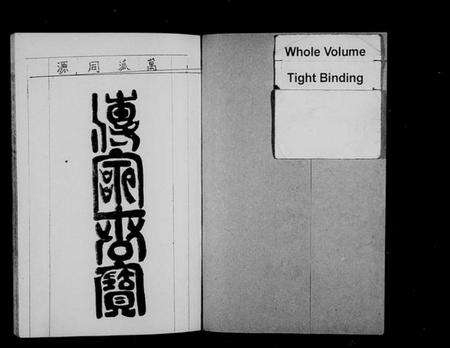 萬派同源
傳家寶
Whole Volume
Tight Binding